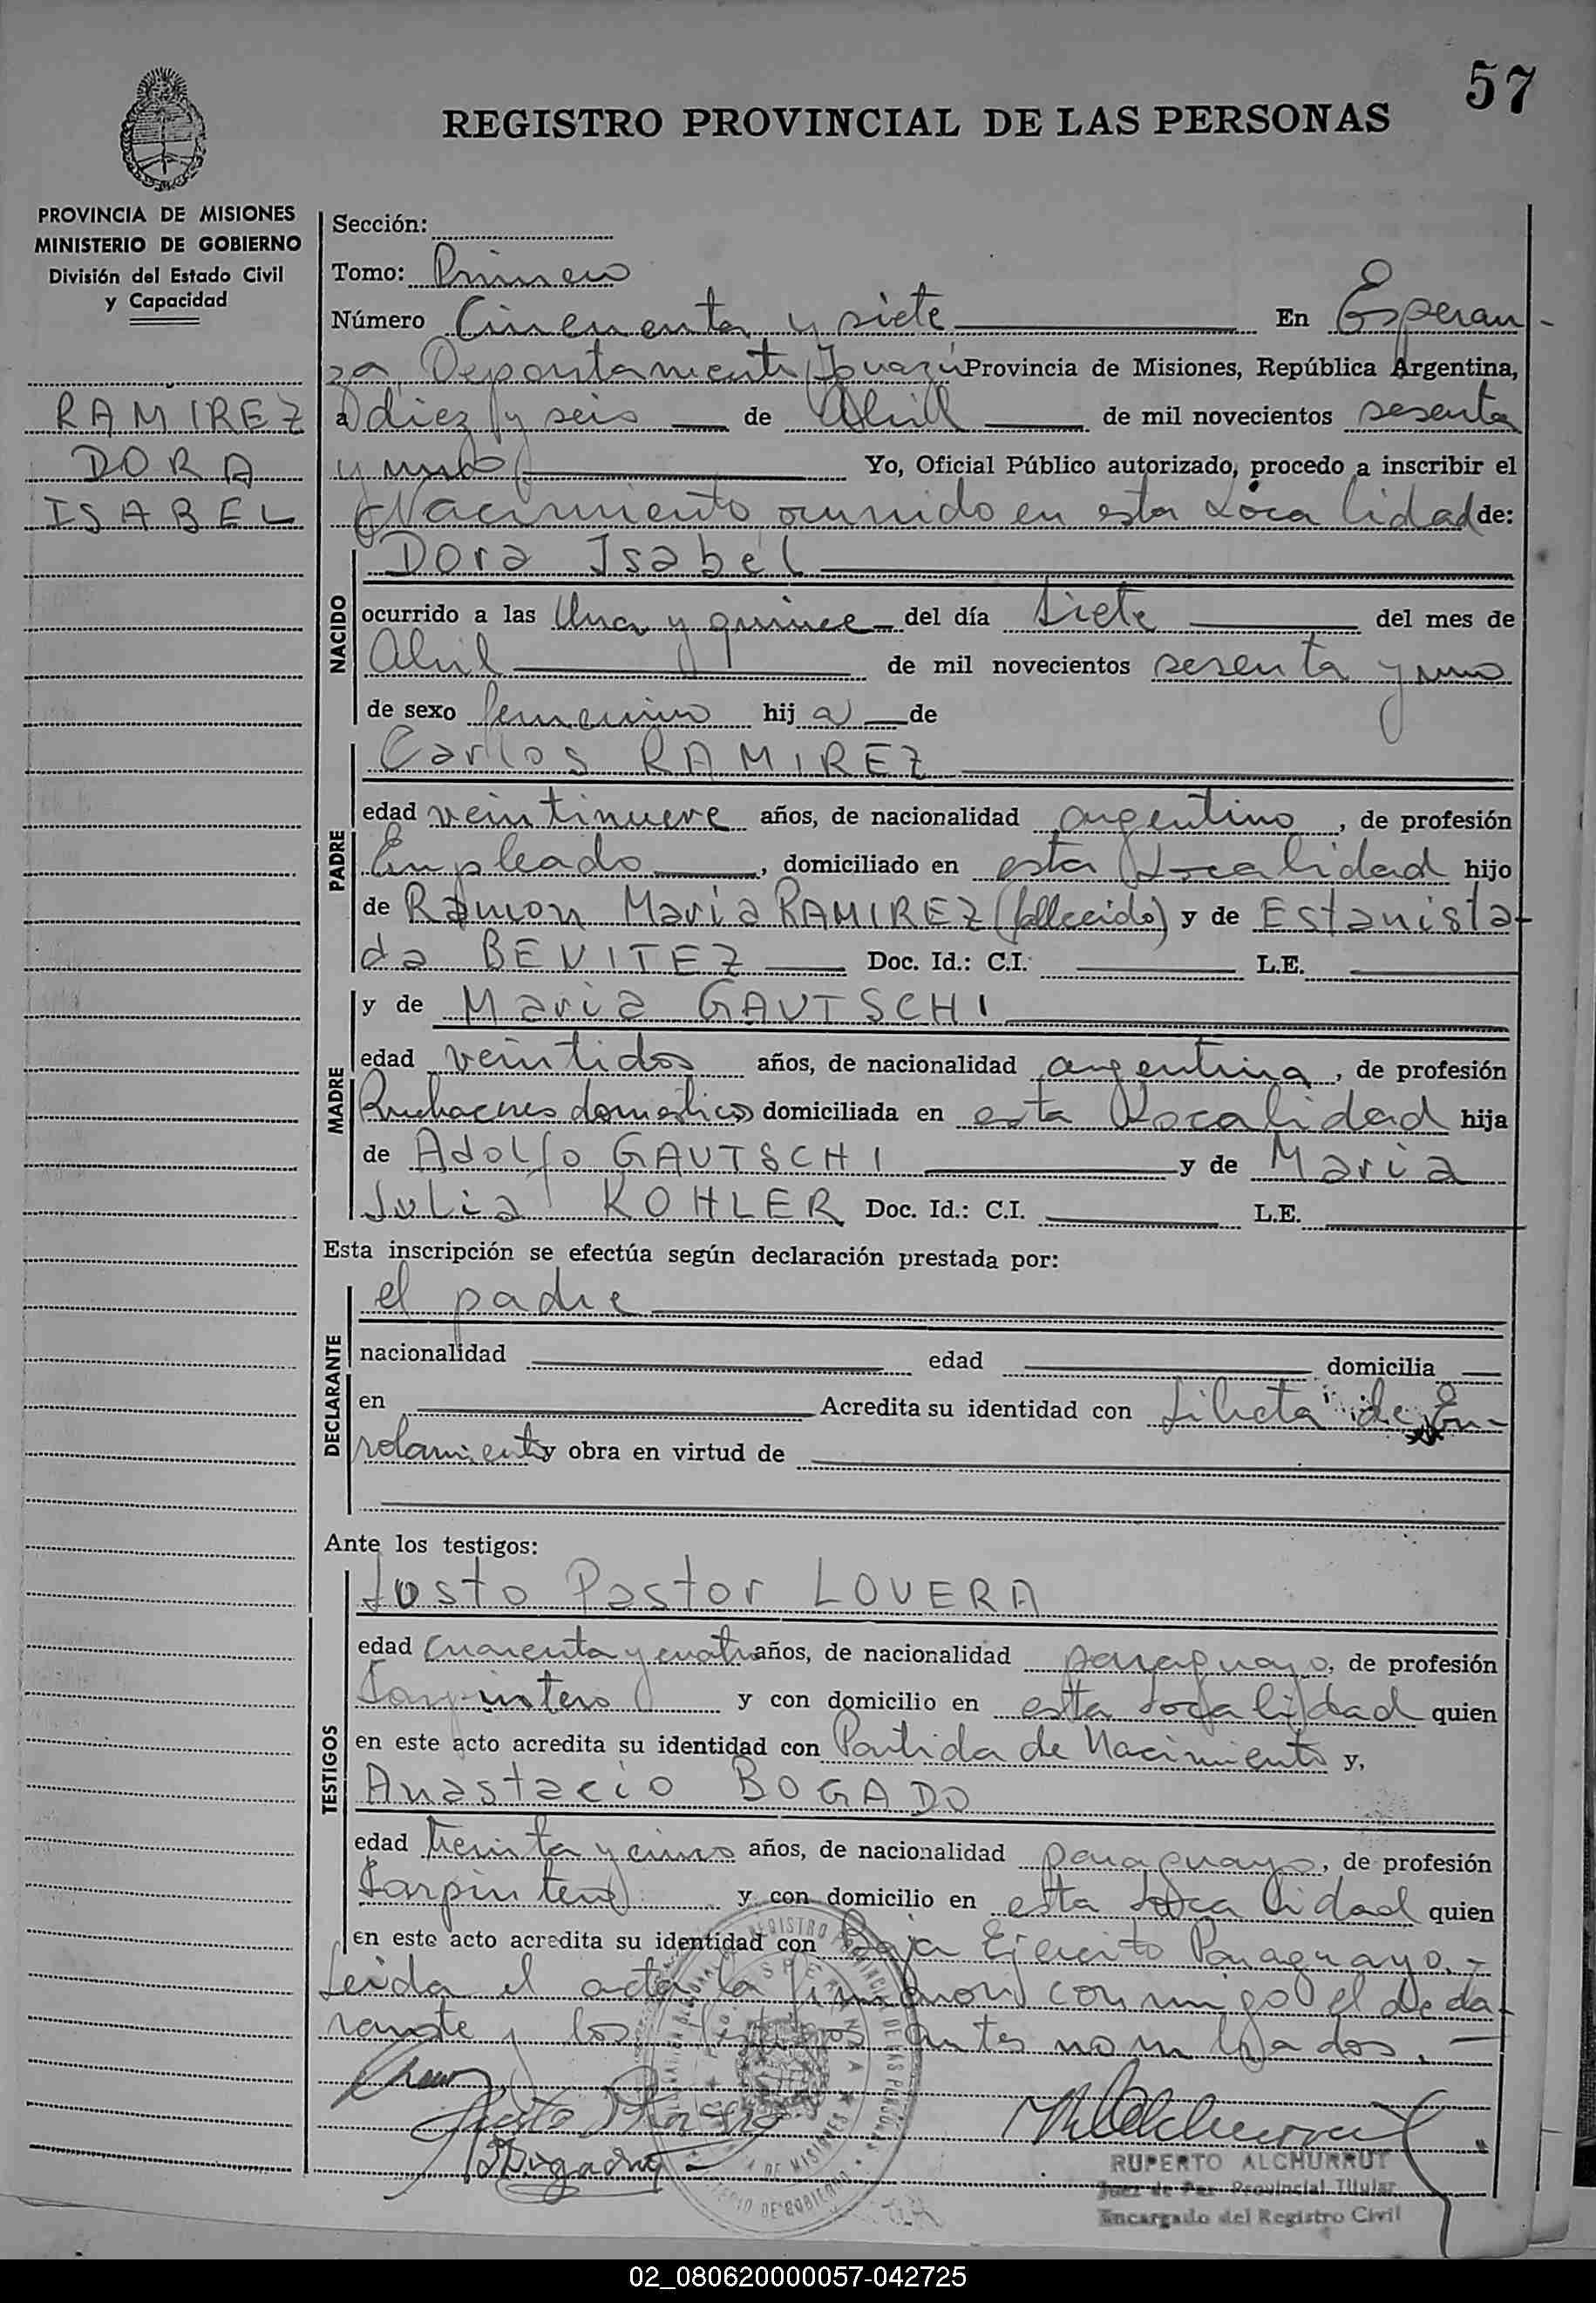 57
REGISTRO PROVINCIAL DE LAS PERSONAS
PROVINCIA DE MISIONES
MINISTERIO DE GOBIERNO
División del Estado Civil
y Capacidad
RAMIREZ
DORA
ISABEL
Sección:
Tomo: Primero
Número Cincuenta y siete En Esperan-
za, Departamento Iguazú Provincia de Misiones, República Argentina,
a diez y seis de Abril de mil novecientos sesenta
y uno Yo, Oficial Público autorizado, procedo a inscribir el
Nacimiento ocurrido en esta Localidad de:
NACIDO
Dora Isabel
ocurrido a las Una y quince del día siete del mes de
Abril de mil novecientos sesenta y uno
de sexo femenino hija de
PADRE
Carlos RAMIREZ
edad veintinueve años, de nacionalidad argentino, de profesión
Empleado, domiciliado en esta Localidad hijo
de Ramon Maria RAMIREZ (fallecido) y de Estanisla-
da BENITEZ Doc. Id.: C.I. L.E.
MADRE
y de Maria GAUTSCHI
edad veintidos años, de nacionalidad argentina, de profesión
Quehaceres domesticos domiciliada en esta Localidad hija
de Adolfo GAUTSCHI y de Maria
Julia KOHLER Doc. Id.: C.I. L.E.
Esta inscripción se efectúa según declaración prestada por:
DECLARANTE
el padre
nacionalidad edad domicilia
en Acredita su identidad con Libreta de En-
rolamiento y obra en virtud de
Ante los testigos:
TESTIGOS
Justo Pastor LOVERA
edad Cuarenta y cuatro años, de nacionalidad paraguayo, de profesión
Carpintero y con domicilio en esta Localidad quien
en este acto acredita su identidad con Partida de Nacimiento y,
Anastacio BOGADO
edad treinta y cinco años, de nacionalidad paraguayo, de profesión
Carpintero y con domicilio en esta Localidad quien
en este acto acredita su identidad con Baja Ejercito Paraguayo.-
Leida el acta la firmaron conmigo el decla-
rante y los testigos antes nombrados.
RUPERTO ALCHURRUT
Juez de Paz Provincial Titular
Encargado del Registro Civil
02_080620000057-042725